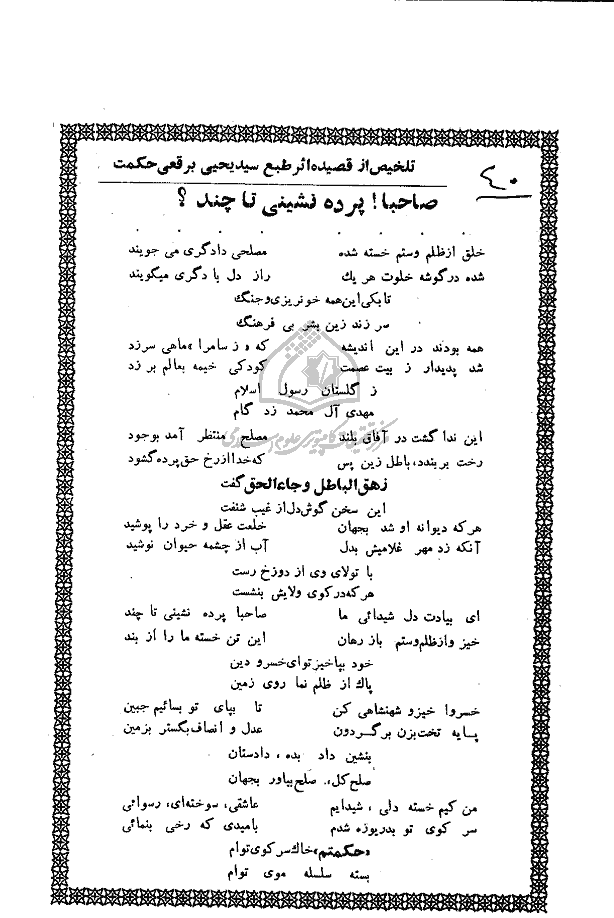 تلخیص از قصیده اثر طبع سیدیحیی برقعی حکمت
۴۰
صاحبا! پرده نشینی تا چند ؟
خلق از ظلم و ستم خسته شده مصلحی دادگری می جویند
شده در گوشه خلوت هر یك راز دل با دگری میگویند
تا بکی این همه خونریزی و جنگ
سر زند زین بشر بی فرهنگ
همه بودند در این اندیشه که « ز سامرا » ماهی سرزد
شد پدیدار ز بیت عصمت کودکی خیمه بعالم بر زد
ز گلستان رسول اسلام
مهدی آل محمد زد گام
این ندا گشت در آفاق بلند مصلح منتظر آمد بوجود
رخت بربندد، باطل زین پس که خدا از رخ حق پرده گشود
زهق الباطل و جاء الحق گفت
این سخن گوش دل از غیب شنفت
هر که دیوانه او شد بجهان خلعت عقل و خرد را پوشید
آنکه زد مهر غلامیش بدل آب از چشمه حیوان نوشید
با تولای وی از دوزخ رست
هر که در کوی ولایش بنشست
ای بیادت دل شیدائی ما صاحبا پرده نشینی تا چند
خیز و از ظلم و ستم باز رهان این تن خسته ما را از بند
خود بپا خیز تو ای خسرو دین
پاك از ظلم نما روی زمین
خسروا خیز و شهنشاهی کن تا بپای تو بسائیم جبین
پایه تخت بزن بر گردون عدل و انصاف بگستر بزمین
بنشین داد بده ، دادستان
صلح کل، صلح بیاور بجهان
من کیم خسته دلی ، شیدایم عاشقی، سوخته‌ای، رسوائی
سر کوی تو بدریوزه شدم بامیدی که رخی بنمائی
«حکمتم» خاك سر کوی توام
بسته سلسله موی توام